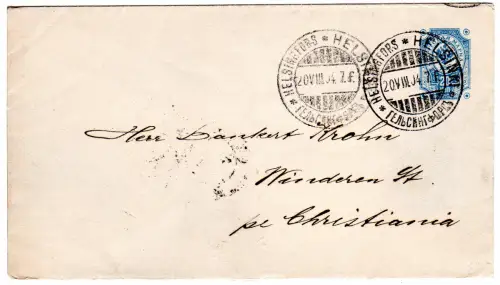 HELSINGFORS * HELSINKI * ГЕЛЬСИНГФОРСЪ *
20 VIII 04 7.F.
HELSINGFORS * HELSINKI * ГЕЛЬСИНГФОРСЪ *
20 VIII 04 7.F.
Herr Dankert Krohn
Winderen St
pr Christiania